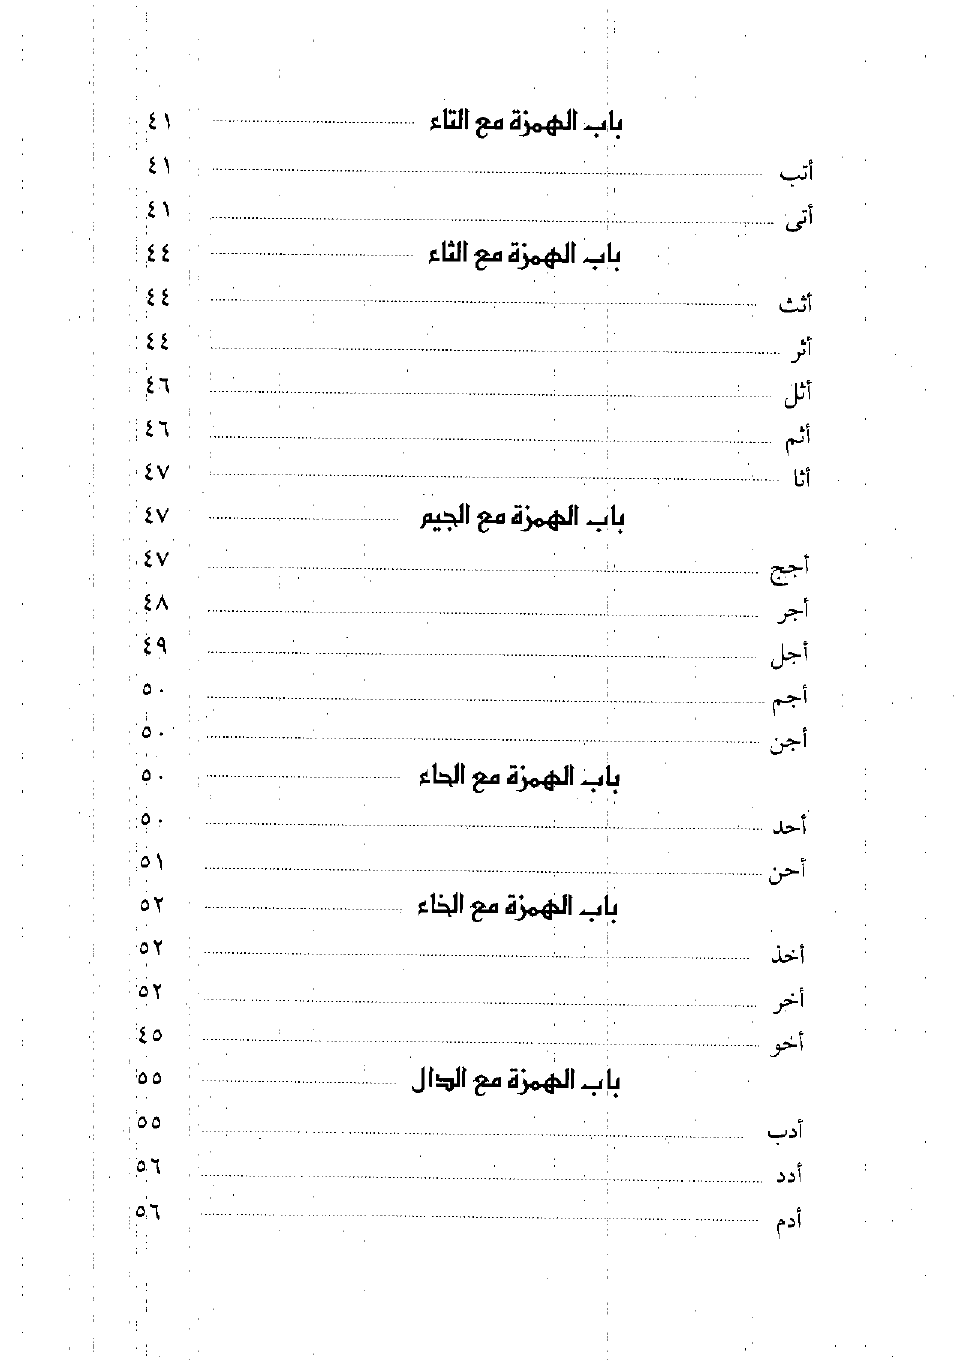 باب الهمزة مع التاء ........ ٤١
أتب ........ ٤١
أتى ........ ٤١
باب الهمزة مع الثاء ........ ٤٤
أثث ........ ٤٤
أثر ........ ٤٤
أثل ........ ٤٦
أثم ........ ٤٦
أثا ........ ٤٧
باب الهمزة مع الجيم ........ ٤٧
أجج ........ ٤٧
أجر ........ ٤٨
أجل ........ ٤٩
أجم ........ ٥٠
أجن ........ ٥٠
باب الهمزة مع الحاء ........ ٥٠
أحد ........ ٥٠
أحن ........ ٥١
باب الهمزة مع الخاء ........ ٥٢
أخذ ........ ٥٢
أخر ........ ٥٢
أخو ........ ٤٥
باب الهمزة مع الدال ........ ٥٥
أدب ........ ٥٥
أدد ........ ٥٦
أدم ........ ٥٦